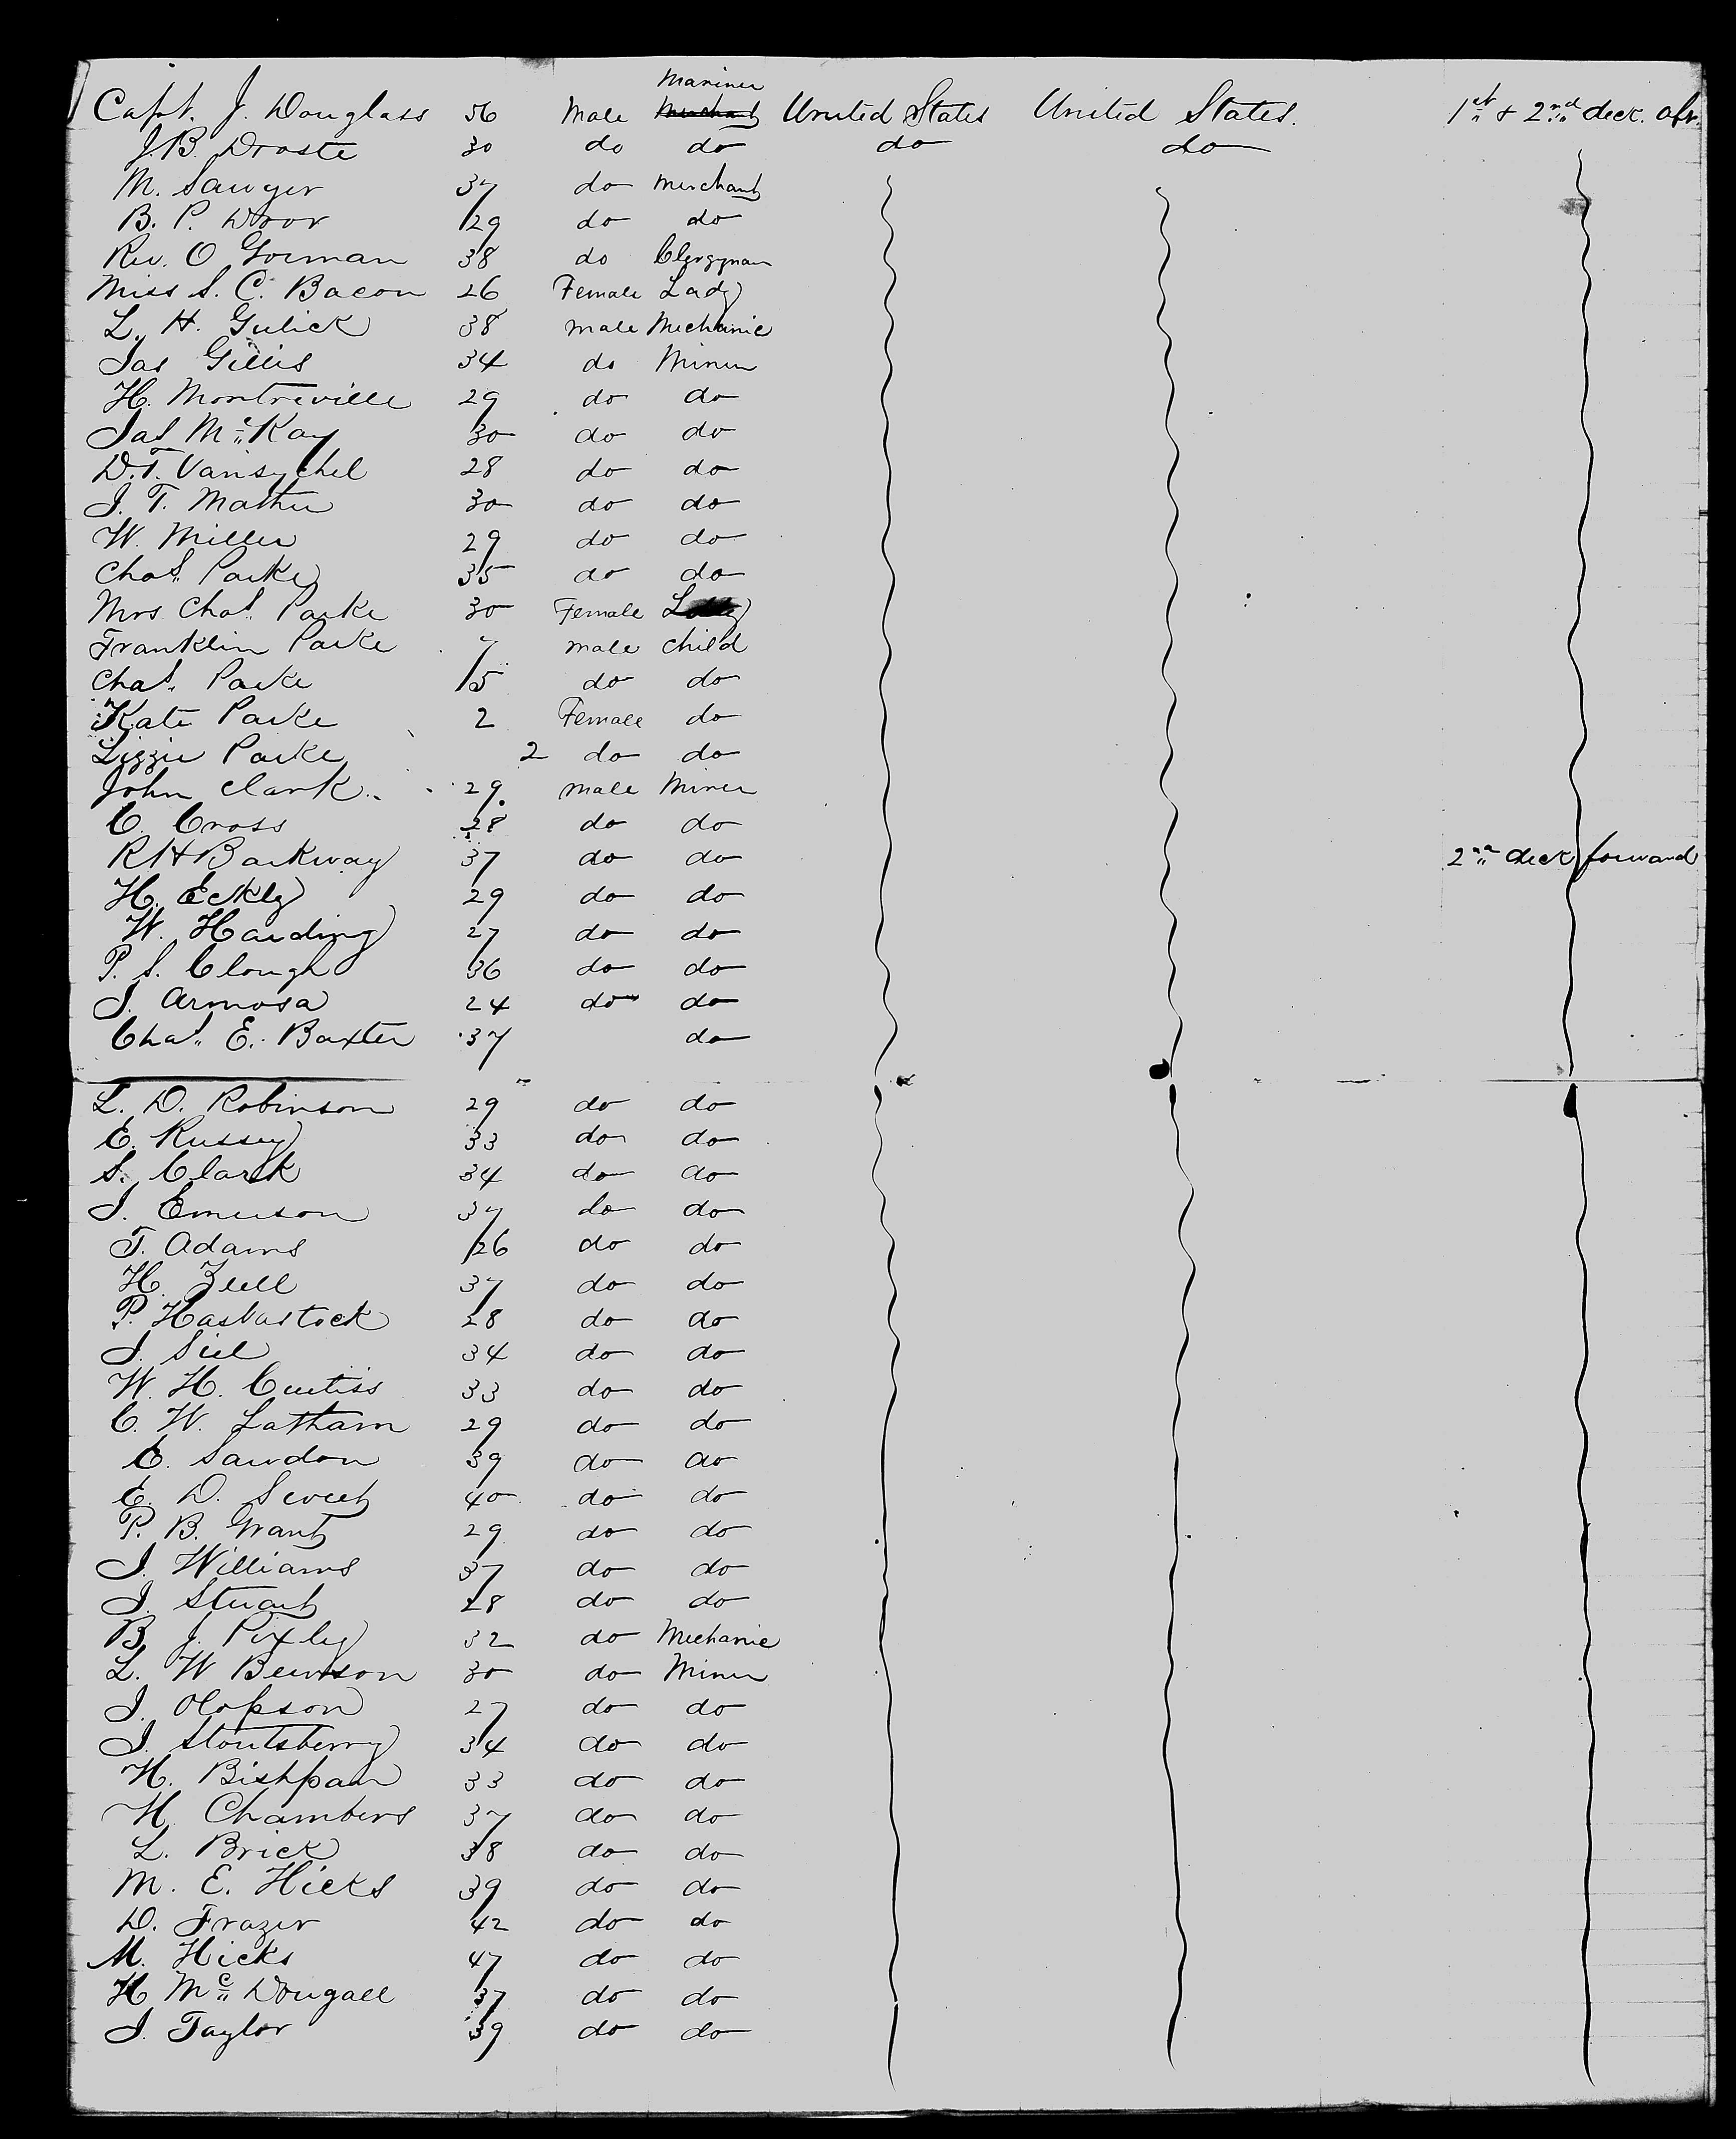 Mariner
Capt. J. Douglass 56 Male Merchant United States United States. 1st & 2nd deck. aft.
J. B. Droste 30 do do do do
M. Sawyer 37 do Merchant
B. P. Door 29 do do
Rev. O Gorman 38 do Clergyman
Miss S. C. Bacon 26 Female Lady
L. H. Gulick 38 male Mechanic
Jas Gillis 34 do Miner
H. Montreville 29 do do
Jas Mc Kay 30 do do
D. T. Vansychel 28 do do
J. T. Mather 30 do do
W. Miller 29 do do
Chas. Parke 35 do do
Mrs Chas. Parke 30 Female Lady
Franklin Parke 7 male child
Chas. Parke 5 do do
Kate Parke 2 Female do
Lizzie Parke 2 do do
John Clark 29 male Miner
C. Cross 28 do do
R H Barkway 37 do do 2nd deck forward
H. Eckly 29 do do
W. Harding 27 do do
P. S. Clough 36 do do
J. Armosa 24 do do
Chas. E. Baxter 37 do
L. D. Robinson 29 do do
E. Russey 33 do do
S. Clark 34 do do
J. Emerson 37 do do
T. Adams 26 do do
H. Zuell 37 do do
P. 28 do do
J. Siel 34 do do
W. H. Curtiss 33 do do
C. W. Latham 29 do do
E. Sawdon 39 do do
E. D. Sweet 40 do do
P. B. Grant 29 do do
J. Williams 37 do do
J. Stuart 28 do do
B J. Pixley 32 do Mechanic
L. W Bewson 30 do Miner
J. Olopson 27 do do
J. Stoutsberry 34 do do
H. Bishpam 33 do do
H. Chambers 37 do do
L. Brick 38 do do
M. E. Hicks 39 do do
D. Frazer 42 do do
M. Hicks 47 do do
H Mc Dougall 37 do do
J. Taylor 39 do do